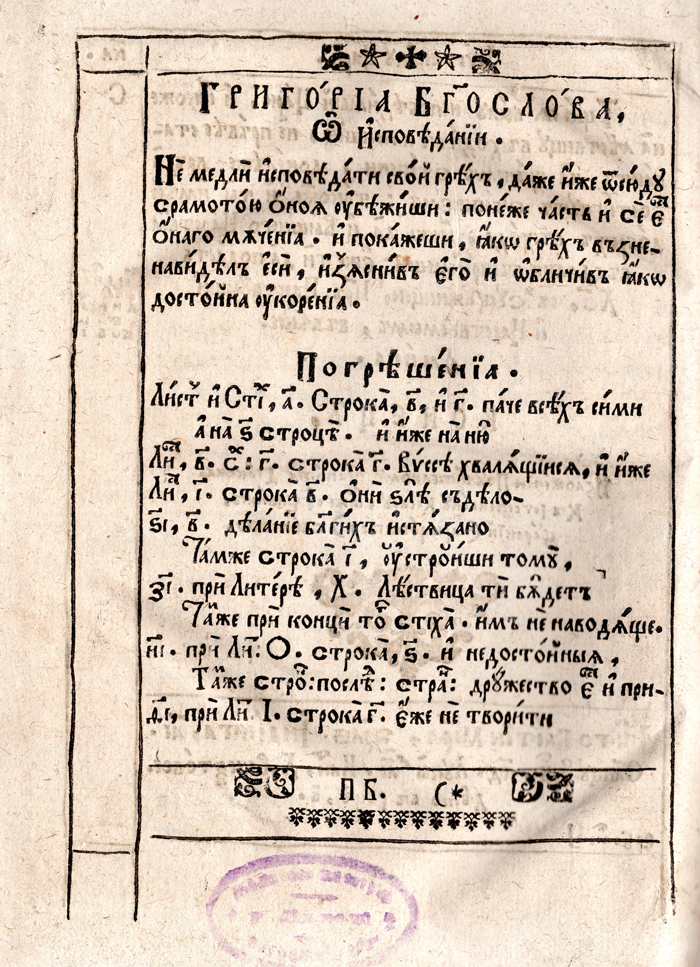 Григо́рїа Бг҃осло́ва,
Ѿ И҆сповѣ́данїи.
Нѐ медлѝ и҆сповѣ́дати сво́й грѣ́хъ, да́же и҆́же ѿсю́дꙋ
срамото́ю ѻ҆́ноѧ ᲂу҆бѣжи́ши: поне́же ча́сть и҆ сѐ є҆ст҇
ѻ҆́наго мѫче́нїа. и҆ пока́жеши, ꙗ҆́кѡ грѣ́хъ възне-
нави́дѣлъ є҆сѝ, и҆з̾ѧсни́въ є҆го̀ и҆ ѡ҆бличи́въ ꙗ҆́кѡ
досто́йна ᲂу҆коре́нїа.
Погрѣше́нїа.
Ли́ст҇ и҆ Сті́х, а҃. Строка̀, в҃, и҆ г҃. па́че всѣ́хъ си́ми
а҆ на̀ ѕ҃ строцѣ̀. и҆ и҆́же на̀ ню̀
Ли́ст, в҃. с҇: г҃. строка̀ г҃. Вꙋ́ссѣ хвалѧ́щїисѧ, и҆ и҆́же
Ли́ст, і҃. строка̀ в҃. ѻ҆нѝ ѕлѣ̀ съдѣ́ло-
ѕ҃і, в҃. дѣ́ланїе бл҃ги́хъ и҆стѧ́зано
Та́мже строка̀ і҃, ᲂу҆стро́иши томꙋ̀,
з҃і. прѝ Ли́терѣ, Х. Лѣ́ствица тѝ бѫ́детъ
Та́же прѝ концѝ то҇̀ стїха̀. и҆́мъ нѐ наводѧ́ще.
и҃і. прѝ Ли҇: О. строка̀, ѕ҃. и҆ недосто́йныѧ,
Та́же стро҇: послѣ́д: стра҇: дрꙋ́жество є҆ст҇ и҆ при-
д҃і, прѝ Ли҇. І. строка̀ г҃. є҆́же нѐ твори́ти
ПБ. (*